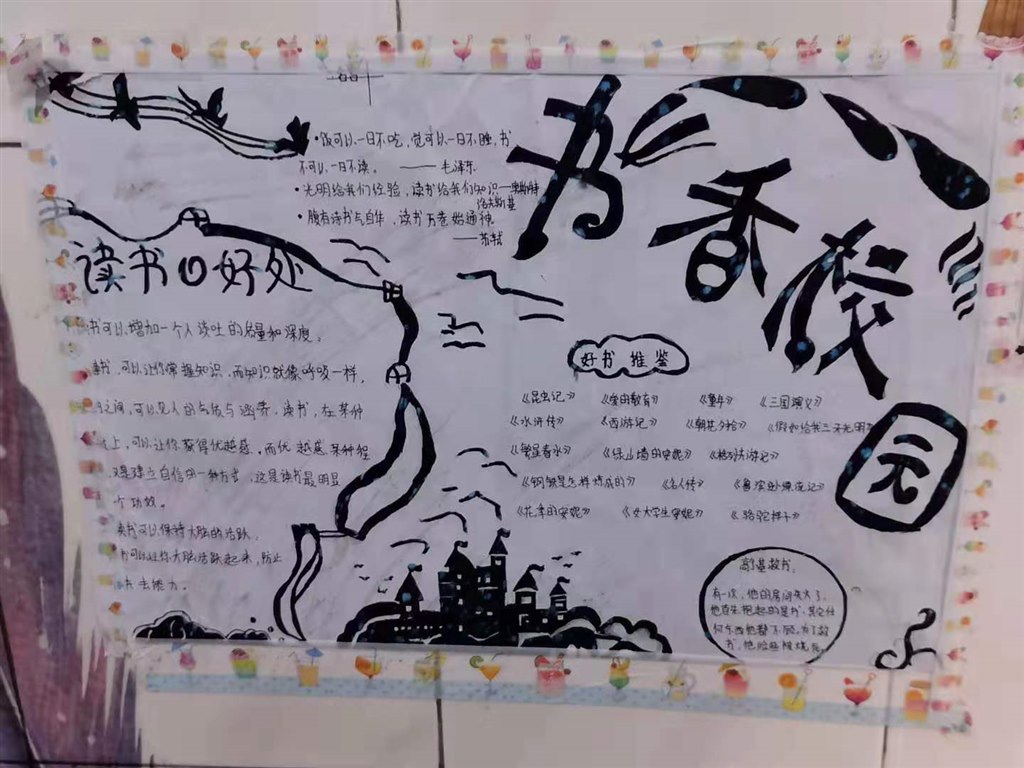 书香校园
•饭可以一日不吃,觉可以一日不睡,书
不可以一日不读。 ——毛泽东
•光明给我们经验,读书给我们知识—奥斯特
洛夫斯基
•腹有诗书气自华,读书万卷始通神。
——苏轼
读书の好处
书可以增加一个人谈吐的质量和深度。
读书,可以让你掌握知识,而知识就像呼吸一样,
之间,可以见人的气质与涵养,读书,在某种
上,可以让你获得优越感,而优越感某种程
是建立自信的一种方式,这是读书最明显
个功效。
读书可以保持大脑的活跃,
书可以让你大脑活跃起来,防止
失去能力。
好书推鉴
《昆虫记》 《爱的教育》 《童年》 《三国演义》
《水浒传》 《西游记》 《朝花夕拾》 《假如给我三天光明》
《繁星春水》 《绿山墙的安妮》 《格列夫游记》
《钢铁是怎样炼成的》 《名人传》 《鲁滨孙漂流记》
《花季的安妮》 《女大学生安妮》 《骆驼祥子》
高尔基救书。
有一次,他的房间失火了,
他首先抱起的是书,其它任
何东西他都不顾,为了救
书,他险些被烧死